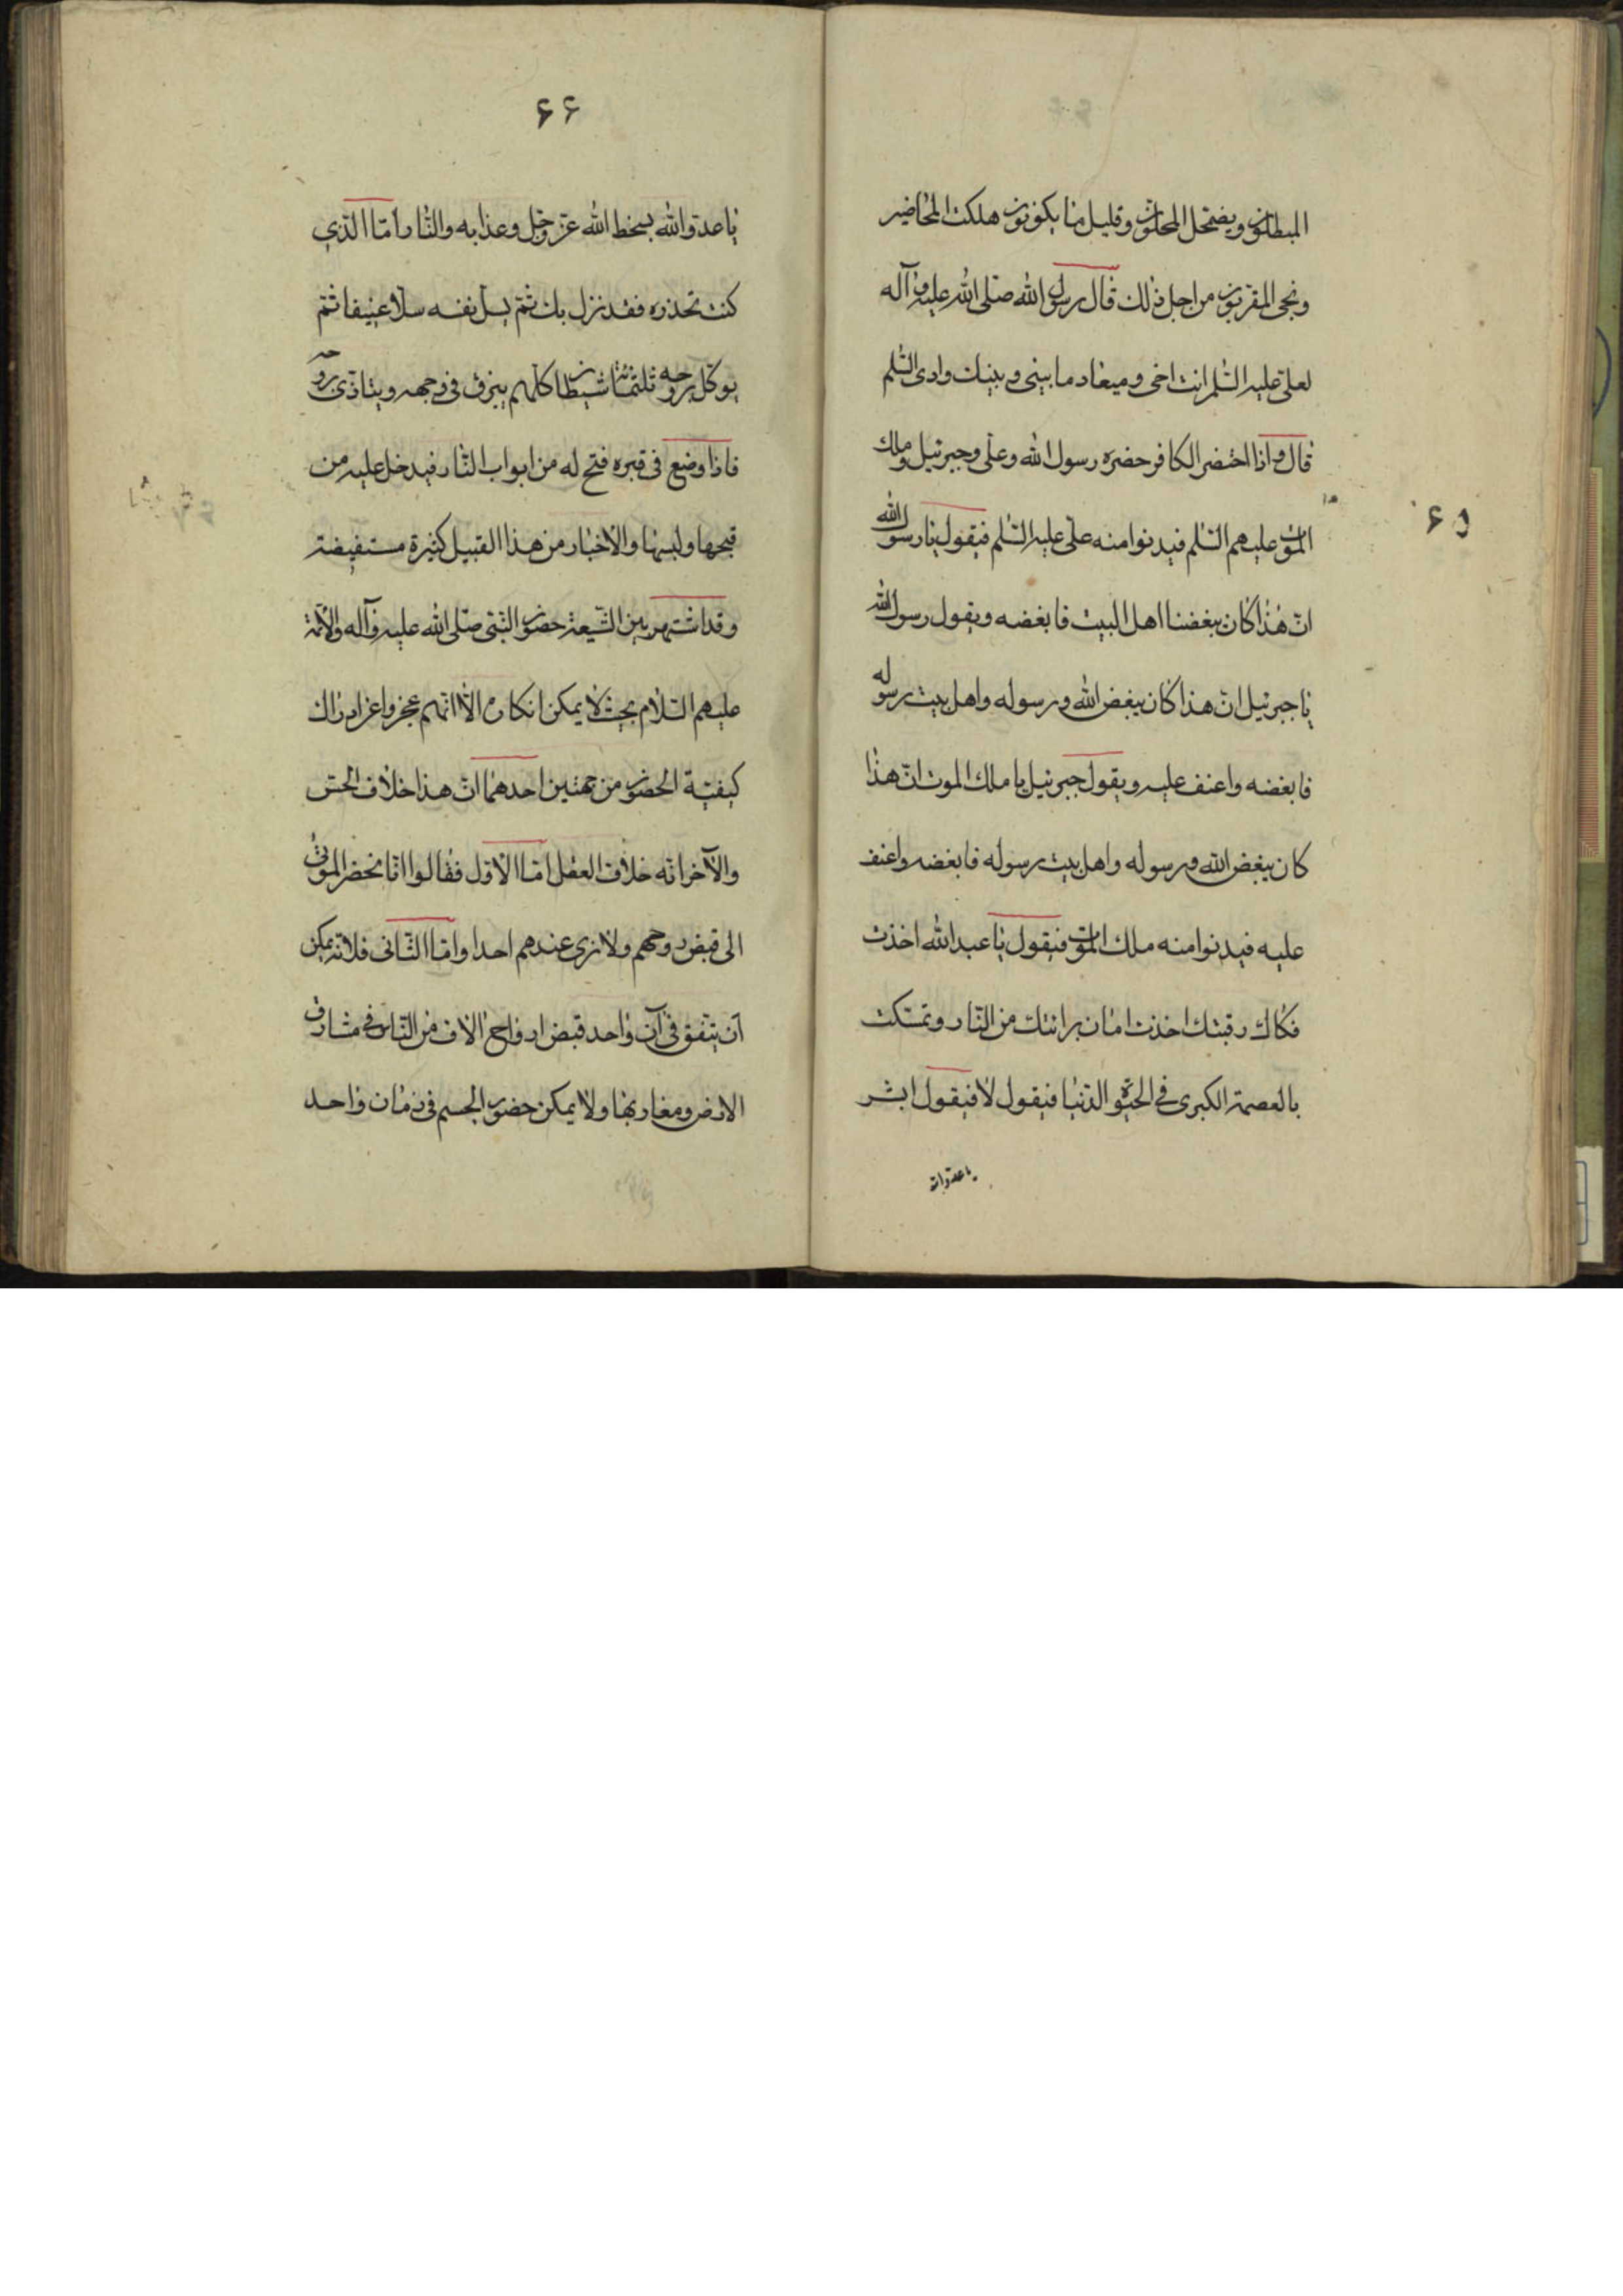 المبطلون ويضمحل المحلون وقليل ما يكونون هلكت المحاضير
ونجى المقربون من اجل ذلك قال رسول الله صلى الله عليه وآله
لعلى عليه السلم انت اخى وميعاد ما بينى وبينك وادى السلم
قال واذا احتضر الكافر حضره رسول الله وعلى وجبرئيل وملك
الموت عليهم السلم فيدنوا منه على عليه السلم فيقول يا رسول الله
۶۵
انّ هذا كان يبغضنا اهل البيت فابغضه ويقول رسول الله
يا جبرئيل انّ هذا كان يبغض الله ورسوله واهل بيت رسوله
فابغضه واعنف عليه ويقول جبرئيل يا ملك الموت انّ هذا
كان يبغض الله ورسوله واهل بيت رسوله فابغضه واعنف
عليه فيدنوا منه ملك الموت فيقول يا عبد الله اخذت
فكاك رقبتك اخذت امان برائتك من النّار وتمسّكت
بالعصمة الكبرى فى الحيوة الدّنيا فيقول لا فيقول ابشر
يا عدوّ الله
۶۶
يا عدوّ الله بسخط الله عزّ وجلّ وعذابه والنّار امّا الّذي
كنت تحذره فقد نزل بك ثمّ يسلّ نفسه سلّا عنيفا ثمّ
يوكّل بروحه ثلثمائة شيطان كلّهم يبزق فى وجهه ويتاذّى بروحه
فاذا وضع فى قبره فتح له من ابواب النّار فيدخل عليه من
قيحها ولهبها والاخبار من هذا القبيل كثيرة مستفيضة
وقد اشتهر بين الشّيعة حضور النّبىّ صلّى الله عليه وآله والائمّة
عليهم السّلام بحيث لا يمكن انكاره الّا انّهم عجزوا عن ادراك
كيفيّة الحضور من جهتين احدهما انّ هذا خلاف الحسّ
والآخر انّه خلاف العقل امّا الاوّل فقالوا انّا نحضر الموتى
الى قبض روحهم ولا نرى عندهم احدا وامّا الثّانى فلانّه يمكن
ان يتّفق فى آن واحد قبض ارواح الاف من النّاس فى مشارق
الارض ومغاربها ولا يمكن حضور الجسم فى زمان واحد